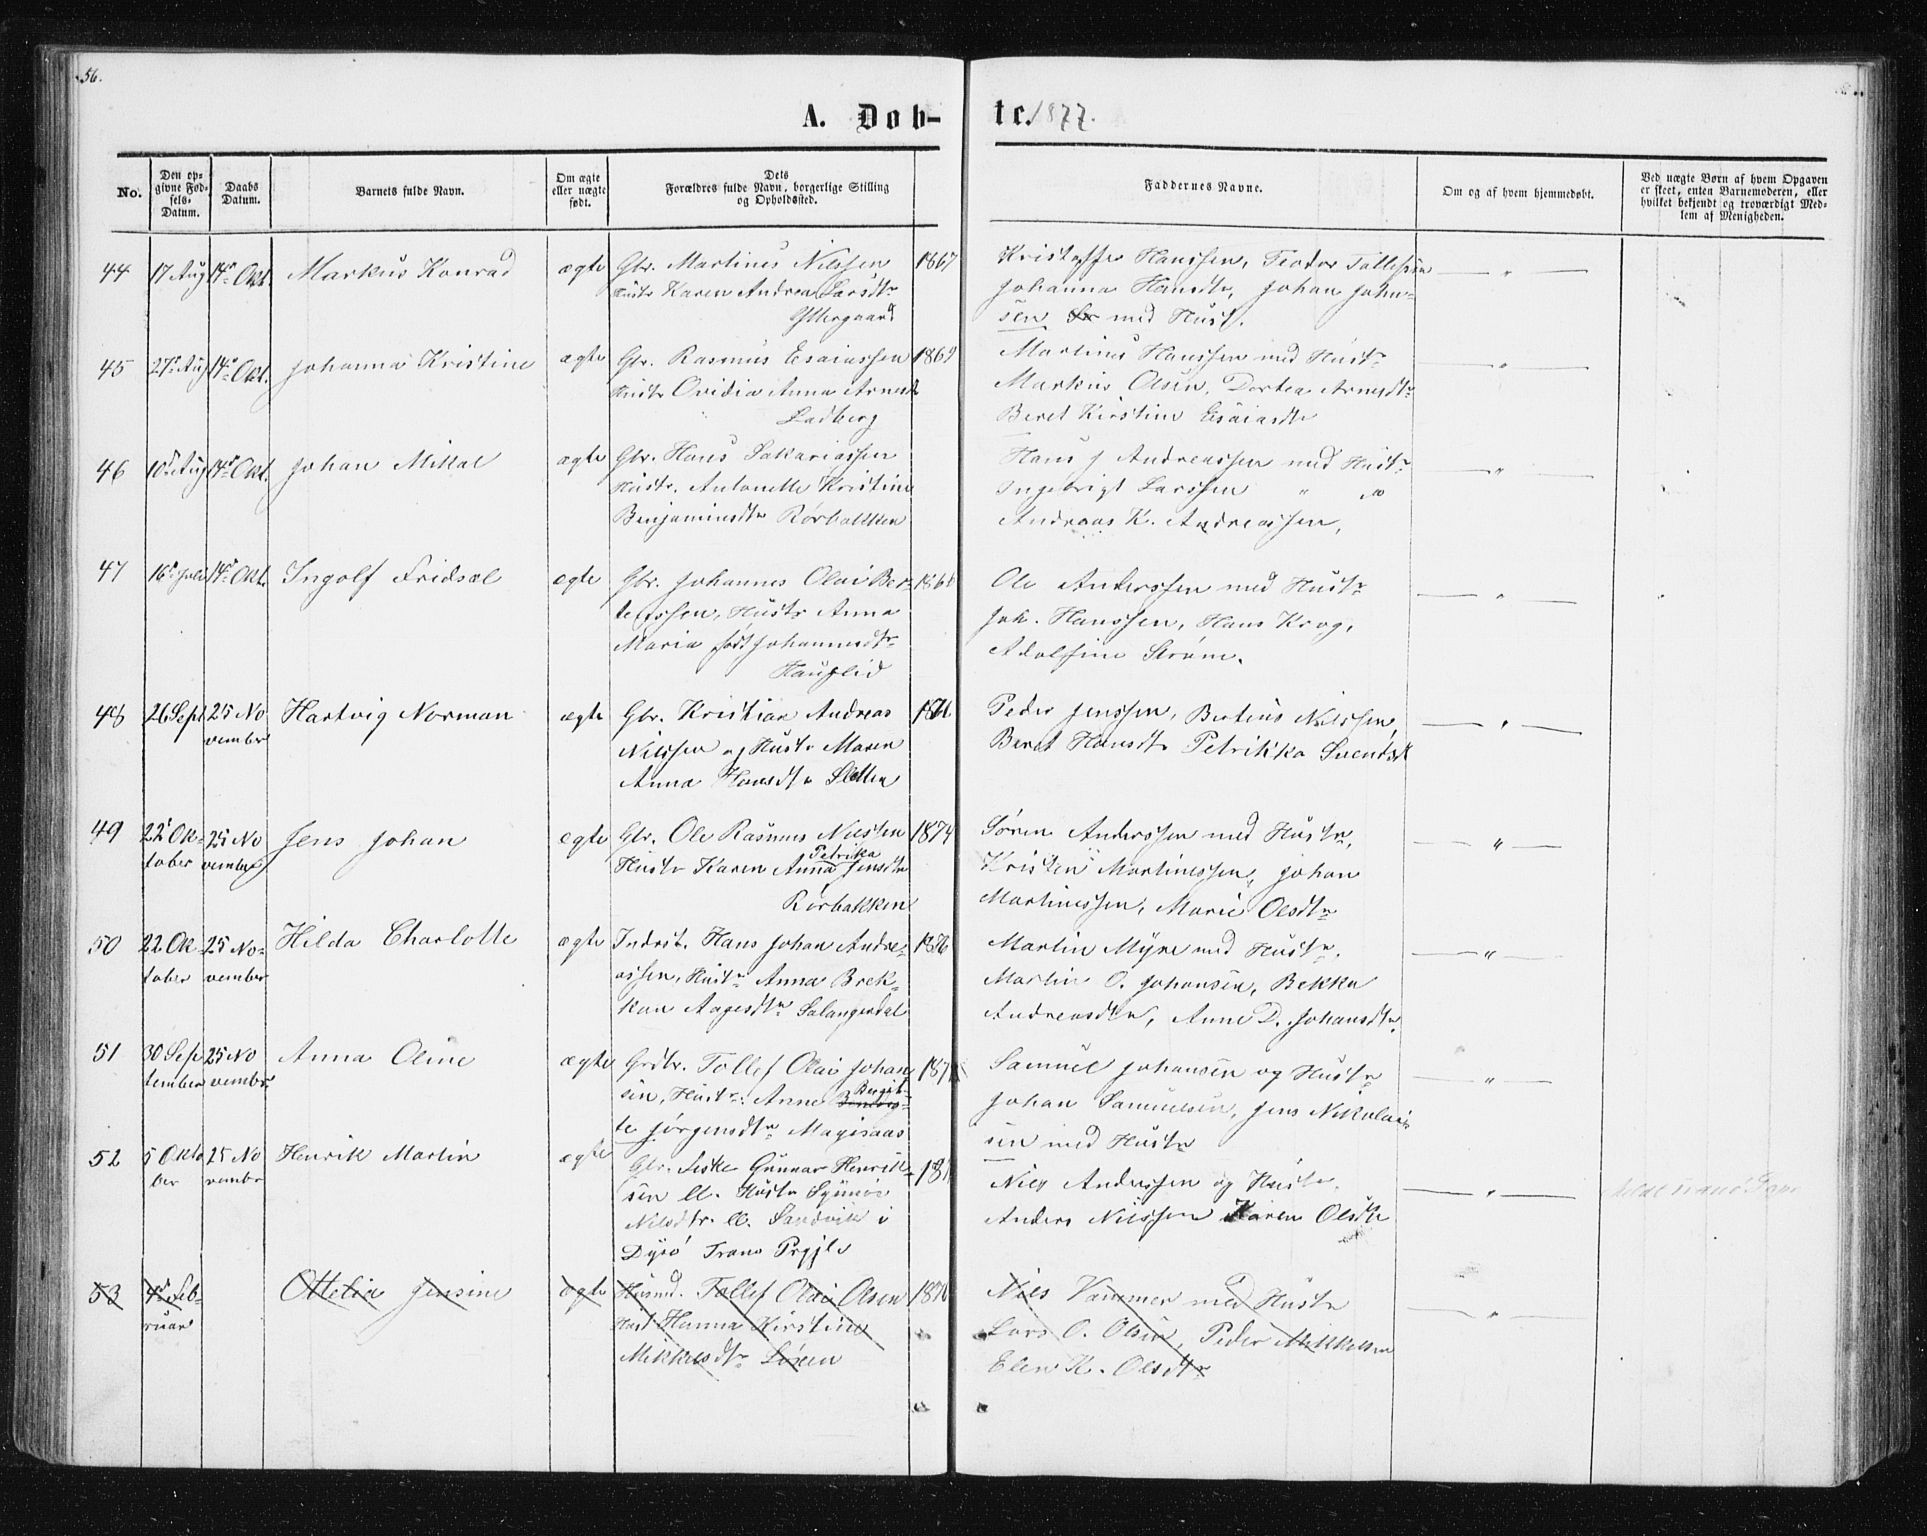 56.
A. Døb-
te. 1877.
No.
Den op-
givne Fød-
sels-
Datum.
Daabs
Datum.
Barnets fulde Navn.
Om ægte
eller uægte
født.
Dets
Forældres fulde Navn, borgerlige Stilling
og Opholdssted.
Faddernes Navne.
Om og af hvem hjemmedøbt.
Ved uægte Børn af hvem Opgaven
er skeet, enten Barnemoderen, eller
hvilket bekjendt og troværdigt Med-
lem af Menigheden.
44 17 Aug 14 Okt. Markus Konrad ægte Gbr. Martinus Nilssen 1867
Hustr Karen Andrea Larsdtr
Yttergaard
Kristoffer Hanssen, Teodor Tollefsen
Johanna Hansdtr, Johan John-
sen med Hust.
45 27 Aug 14 Okt. Johanna Kristine ægte Gbr. Rasmus Esaiassen 1869
Hustr Ovidia Anna Arnesdtr
Ladberg
Martinus Hanssen med Hustr
Markus Olsen, Dortea Arnesdtr
Beret Kirstine Esaiasdtr
46 10 Aug 14 Okt. Johan Mikal ægte Gbr. Hans Sakariassen
Hustr. Antonette Kristine
Benjaminsdtr Rørbakken
Hans J Andreassen med Hustr
Ingebrigt Larssen " "
Andreas K. Andreassen,
47 16 Juli 14 Okt. Ingolf Fridsæl ægte Gbr. Johannes Olai Ber-
tenssen, Hustr Anna
Maria født Johannesdtr
Hauglid
Ole Anderssen med Hustr
Joh. Hanssen, Hans Krog,
Adolfine Strøm.
48 26 Sept 25 No
vember
Hartvig Norman ægte Gbr. Kristian Andreas
Nilssen og Hustr Maren
Anna Hansdtr Sletten
Peder Jenssen, Berteus Nilssen,
Beret Hansdtr Petrikka Svendsdt
49 22 Ok-
tober
25 No
vember
Jens Johan ægte Gbr. Ole Rasmus Nilssen 1874
Petrika
Hustr Karen Anna Jensdtr
Rørbakken
Søren Anderssen med Hustr,
Kristen Martinussen, Johan
Martinussen, Marie Olsdtr
50 22 Ok-
tober
25 No-
vember
Hilda Charlotte ægte Indrst. Hans Johan Andre-
assen, Hustr Anna Brek-
kan Aagesdtr Salangsdal
Martin Myre med Hustr,
Martin O. Johansen, Bekka
Andreasdtr, Anne D. Johansdtr.
51 30 Sep
tember
25 No
vember
Anna Oline ægte Grdbr. Tollef Olai Johan
Bergit-
sen, Hustr: Anne
te Jørgensdtr Magisaas
Samuel Johansen og Hustr
Johan Samuelsen, Jens Nikolai-
sen med Hustr
52 5 Okto
ber
25 No
vember
Henrik Martin ægte Gbr. Fisker Gunnar Henrik-
sen ll. Hustr Synnøve
Nilsdtr. ll. Sandvik i
Dyrø Tranø Prgjld
Nils Anderssen og Hustr,
Anders Nilssen Karen Olsdtr
53 4 Feb-
ruar
Ottelia Jensine ægte Husmd. Tollef Olai Olsen 1876
Hust Hanna Kirstine
Mikkelsdtr Løren
Nils Vammer med Hustr
Lars O. Olsen, Peder Mikkelsen
Elen K. Olsdtr